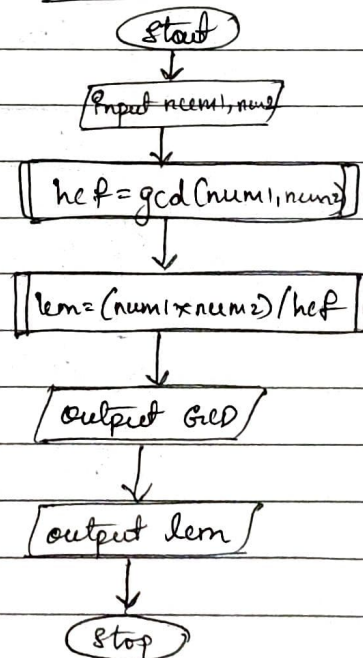 Start
Input num1, num2
hcf = gcd(num1, num2)
lcm = (num1 × num2) / hcf
output GCD
output lcm
Stop